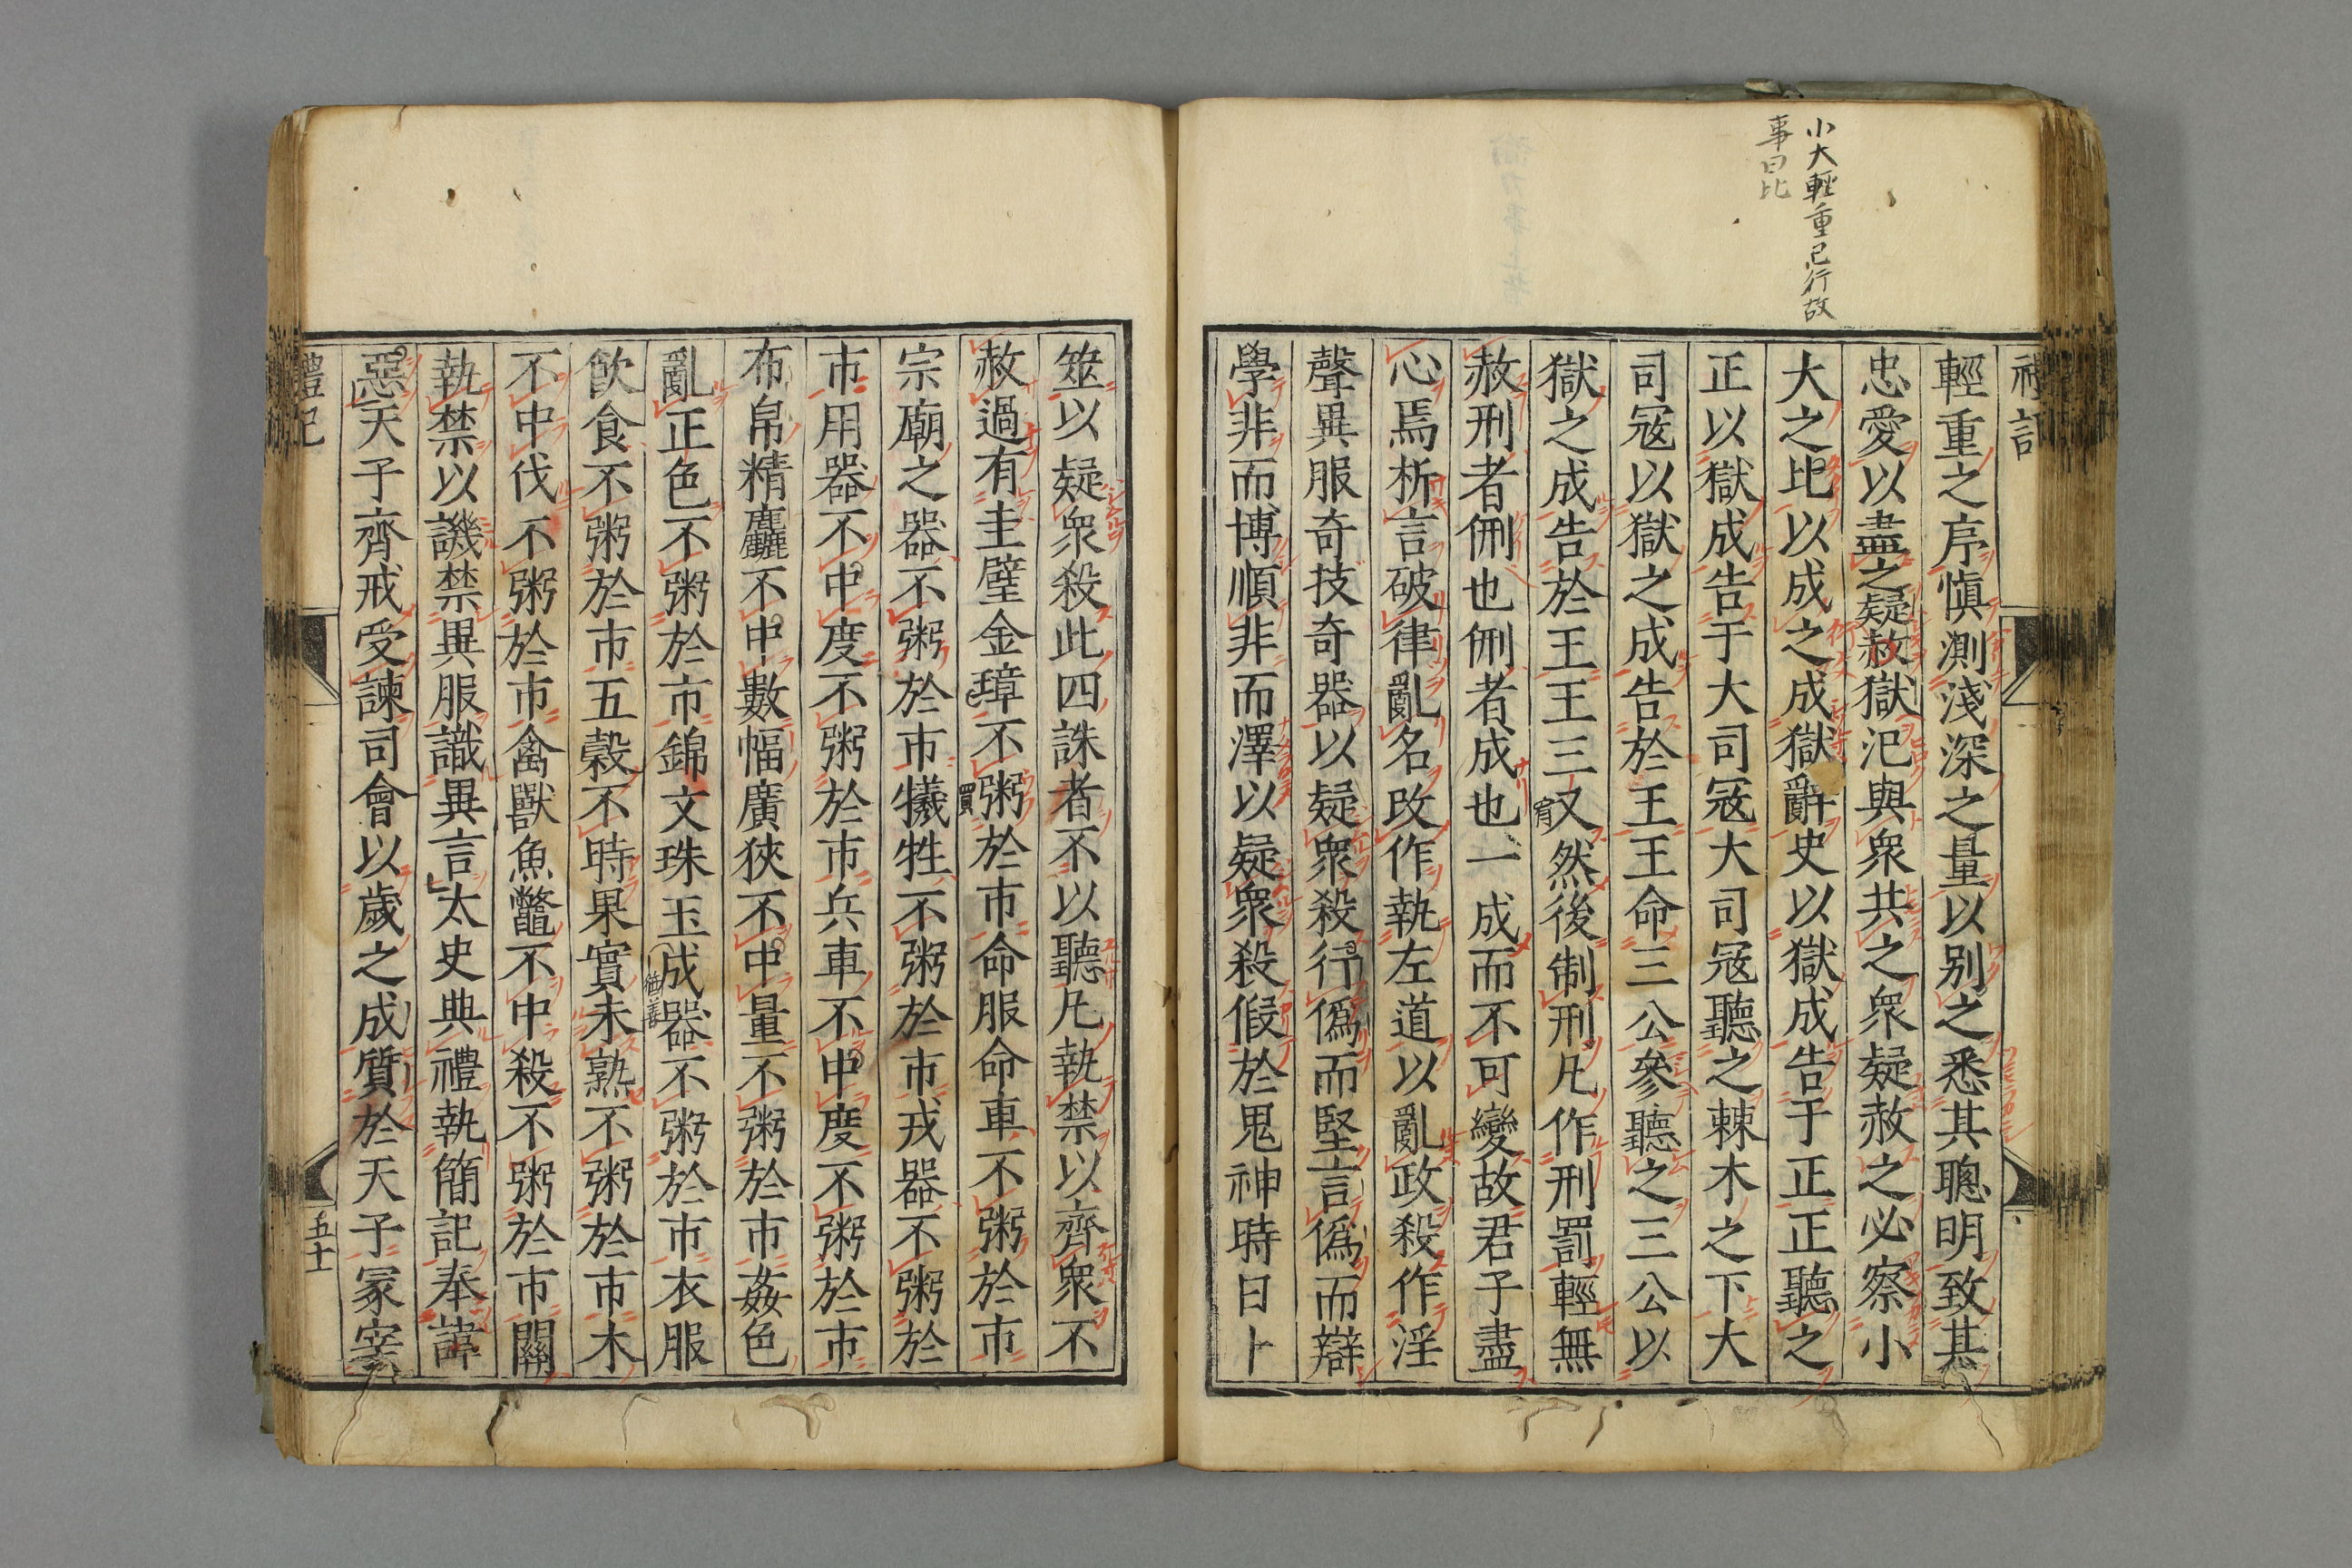 小大輕重已行故
事曰比
輕重之序愼測淺深之量以別之悉其聰明致其
忠愛以盡之疑赦獄汜與衆共之衆疑赦之必察小
大之比以成之成獄辭史以獄成告于正正聽之
正以獄成告于大司冦大司冦聽之棘木之下大
司冦以獄之成告於王王命三公參聽之三公以
獄之成告於王王三又然後制刑凡作刑罰輕無
宥
赦刑者侀也侀者成也一成而不可變故君子盡
心焉析言破律亂名改作執左道以亂政殺作淫
聲異服奇技奇器以疑衆殺行僞而堅言僞而辯
學非而博順非而澤以疑衆殺假於鬼神時日卜
筮以疑衆殺此四誅者不以聽凡執禁以齊衆不
赦過有圭璧金璋不粥於市命服命車不粥於市
買
宗廟之器不粥於市犧牲不粥於市戎器不粥於
市用器不中度不粥於市兵車不中度不粥於市
布帛精麤不中數幅廣狹不中量不粥於市姦色
亂正色不粥於市錦文珠玉成器不粥於市衣服
猶善
飮食不粥於市五穀不時果實未熟不粥於市木
不中伐不粥於市禽獸魚鼈不中殺不粥於市關
執禁以譏禁異服識異言太史典禮執簡記奉諱
惡天子齊戒受諫司會以歲之成質於天子冢宰
禮記
五十